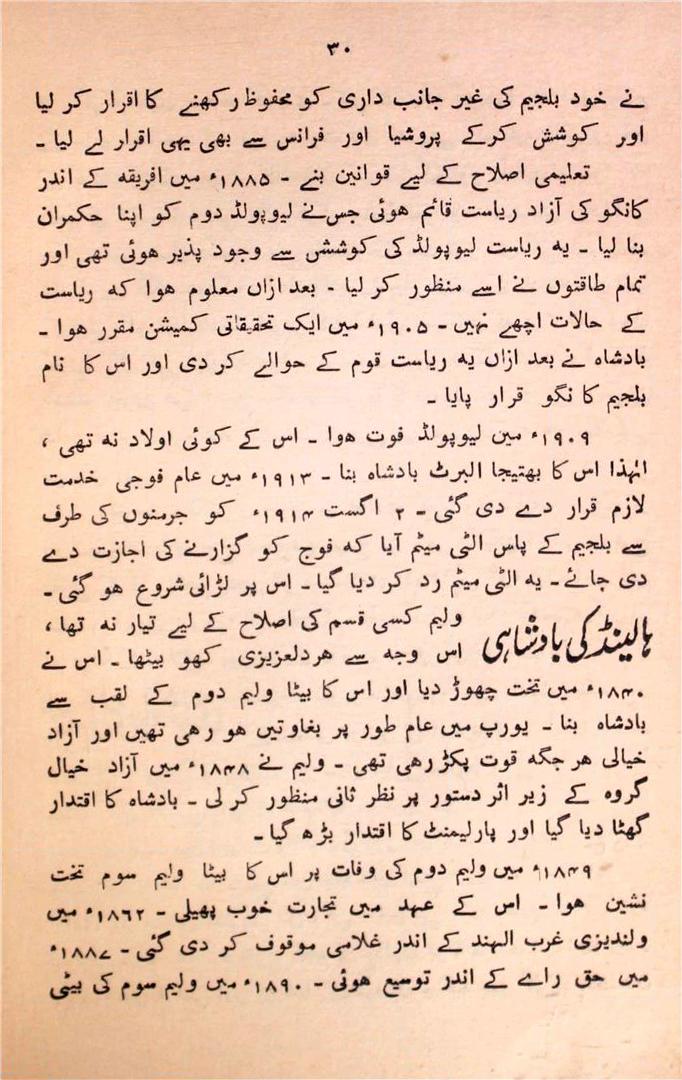 ۳۰
نے خود بلجیم کی غیر جانب داری کو محفوظ رکھنے کا اقرار کر لیا
اور کوشش کرکے پروشیا اور فرانس سے بھی یہی اقرار لے لیا ۔
تعلیمی اصلاح کے لیے قوانین بنے ۔ ۱۸۸۵ء میں افریقہ کے اندر
کانگو کی آزاد ریاست قائم ہوئی جس نے لیوپولڈ دوم کو اپنا حکمران
بنا لیا ۔ یہ ریاست لیوپولڈ کی کوشش سے وجود پذیر ہوئی تھی اور
تمام طاقتوں نے اسے منظور کر لیا ۔ بعد ازاں معلوم ہوا کہ ریاست
کے حالات اچھے نہیں ۔ ۱۹۰۵ء میں ایک تحقیقاتی کمیشن مقرر ہوا ۔
بادشاہ نے بعد ازاں یہ ریاست قوم کے حوالے کر دی اور اس کا نام
بلجیم کانگو قرار پایا ۔
۱۹۰۹ء میں لیوپولڈ فوت ہوا ۔ اس کے کوئی اولاد نہ تھی ،
لہٰذا اس کا بھتیجا البرٹ بادشاہ بنا ۔ ۱۹۱۳ء میں عام فوجی خدمت
لازم قرار دے دی گئی ۔ ۲ اگست ۱۹۱۴ء کو جرمنوں کی طرف
سے بلجیم کے پاس الٹی میٹم آیا کہ فوج کو گزارنے کی اجازت دے
دی جائے ۔ یہ الٹی میٹم رد کر دیا گیا ۔ اس پر لڑائی شروع ہو گئی ۔
ہالینڈ کی بادشاہی
ولیم کسی قسم کی اصلاح کے لیے تیار نہ تھا ،
اس وجہ سے ہردلعزیزی کھو بیٹھا ۔ اس نے
۱۸۴۰ء میں تخت چھوڑ دیا اور اس کا بیٹا ولیم دوم کے لقب سے
بادشاہ بنا ۔ یورپ میں عام طور پر بغاوتیں ہو رہی تھیں اور آزاد
خیالی ہر جگہ قوت پکڑ رہی تھی ۔ ولیم نے ۱۸۴۸ء میں آزاد خیال
گروہ کے زیر اثر دستور پر نظر ثانی منظور کر لی ۔ بادشاہ کا اقتدار
گھٹا دیا گیا اور پارلیمنٹ کا اقتدار بڑھ گیا ۔
۱۸۴۹ء میں ولیم دوم کی وفات پر اس کا بیٹا ولیم سوم تخت
نشین ہوا ۔ اس کے عہد میں تجارت خوب پھیلی ۔ ۱۸۶۲ء میں
ولندیزی غرب الہند کے اندر غلامی موقوف کر دی گئی ۔ ۱۸۸۷ء
میں حق راے کے اندر توسیع ہوئی ۔ ۱۸۹۰ء میں ولیم سوم کی بیٹی